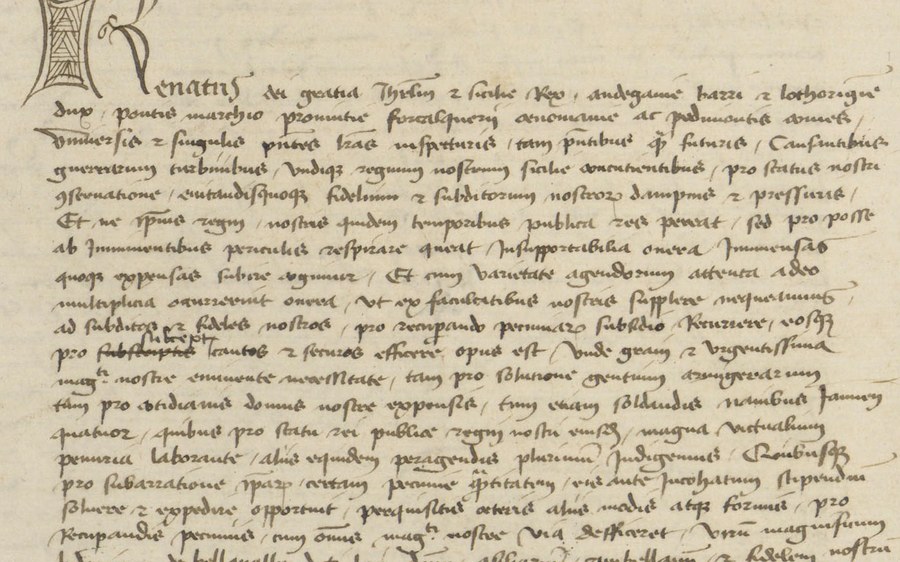 Renatus dei gratia Jhrlm et sicilie Rex, andegavie barri et lothoringie
dux, pontis marchio provincie forcalquerii cenomanie ac pedimontis comes,
Universis et singulis pntes lras inspecturis, tam pntibus q futuris, Causantibus
guerrarum turbinibus, undiq regnum nostrum sicilie concutientibus, pro status nostri
conservatione, evitandisquoq fidelium et subditorum nostror dampnis et pressuris,
Et ne ipsius regni, nostris quidem temporibus publica res pereat, sed pro posse
ab imminentibus periculis respirare queat, Insupportabilia onera, Immensas
quoq expensas subire cogimur, Et cum varietate agendorum attenta adeo
multiplicia occurrerint onera, ut ex facultatibus nostris supplere nequeamus,
ad subditos et fideles nostros, pro recuperando pecuniar subsidio, Recurrere, eosq
pro cautos et securos efficere, opus est, Unde gravi et urgentissima
magti nostre eminente necessitate, tam pro solutione gentium armigerarum
tam pro cotidianis domus nostre expensis, tum etiam soldandis navibus Januen
quatuor, quibus pro statu rei publice regni nostri eiusd, magna victualium
penuria laborante, aliis equidem peragendis plurimum Indigemus, Quibusq
pro subarratione ipar certam pecunie qtitatem, eis ante Incohatum stipendium
solvere et expedire opportuit, perquisitis ceteris aliis modis atq formis, pro
Recuperandis pecuniis, cum omnis magti nostre via defficeret, virum magnificum
et fidelem nostrum